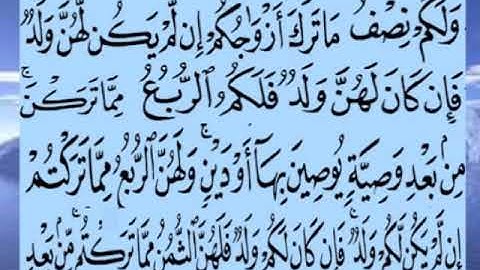 وَلَكُمْ نِصْفُ مَا تَرَكَ أَزْوَاجُكُمْ إِن لَّمْ يَكُن لَّهُنَّ وَلَدٌ
فَإِن كَانَ لَهُنَّ وَلَدٌ فَلَكُمُ ٱلرُّبُعُ مِمَّا تَرَكْنَ ۚ
مِنۢ بَعْدِ وَصِيَّةٍ يُوصِينَ بِهَآ أَوْ دَيْنٍ ۚ وَلَهُنَّ ٱلرُّبُعُ مِمَّا تَرَكْتُمْ
إِن لَّمْ يَكُن لَّكُمْ وَلَدٌ ۚ فَإِن كَانَ لَكُمْ وَلَدٌ فَلَهُنَّ ٱلثُّمُنُ مِمَّا تَرَكْتُم ۚ مِّنۢ بَعْدِ